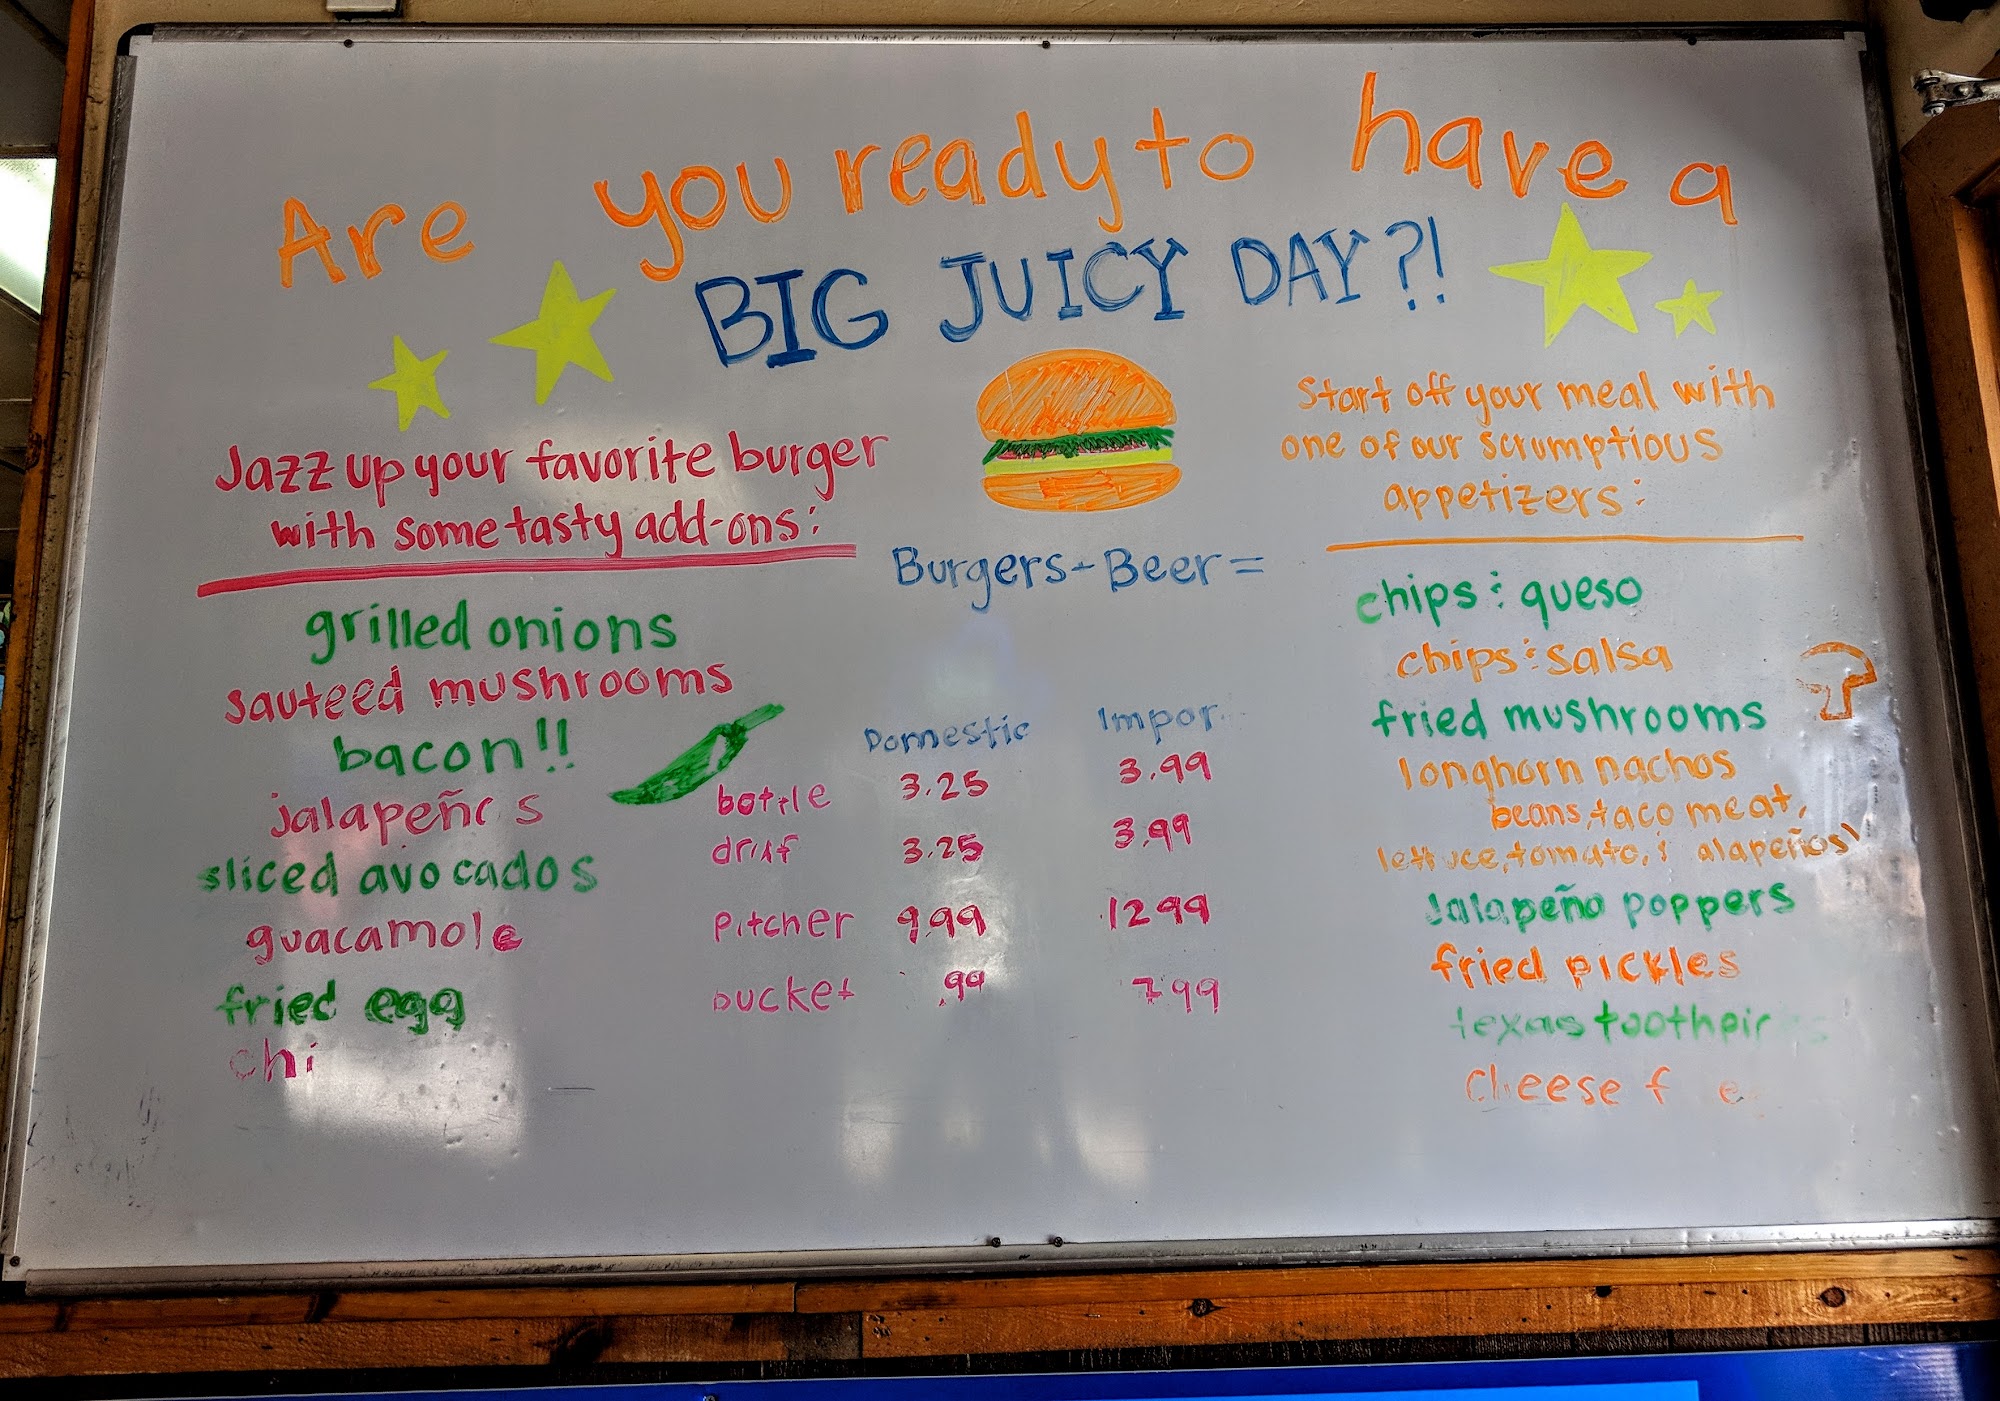 Are you ready to have a
BIG JUICY DAY?!
Jazz up your favorite burger
with some tasty add-ons:
grilled onions
sauteed mushrooms
bacon!!
jalapeños
sliced avocados
guacamole
fried egg
Burgers + Beer =
Domestic Impor
bottle 3.25 3.99
draf 3.25 3.99
Pitcher 9.99 12.99
bucket .99 7.99
Start off your meal with
one of our scrumptious
appetizers:
chips & queso
chips & salsa
fried mushrooms
longhorn nachos
beans, taco meat,
lettuce, tomato, & alapeños)
Jalapeño poppers
fried pickles
texas
cheese